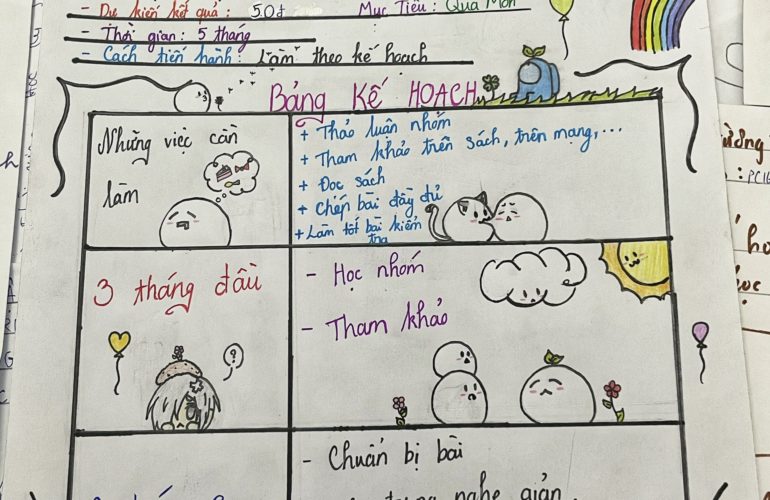 - Dự kiến kết quả : 5.0đ
Mục Tiêu : Qua Môn
- Thời gian : 5 tháng
- Cách tiến hành : Làm theo kế hoạch
Bảng KẾ HOẠCH
Những việc cần
làm
+ Thảo luận nhóm
+ Tham khảo trên sách, trên mạng,...
+ Đọc sách
+ Chép bài đầy đủ
+ Làm tốt bài kiểm
tra
3 tháng đầu
?
- Học nhóm
- Tham khảo
- Chuẩn bị bài
nghe giản